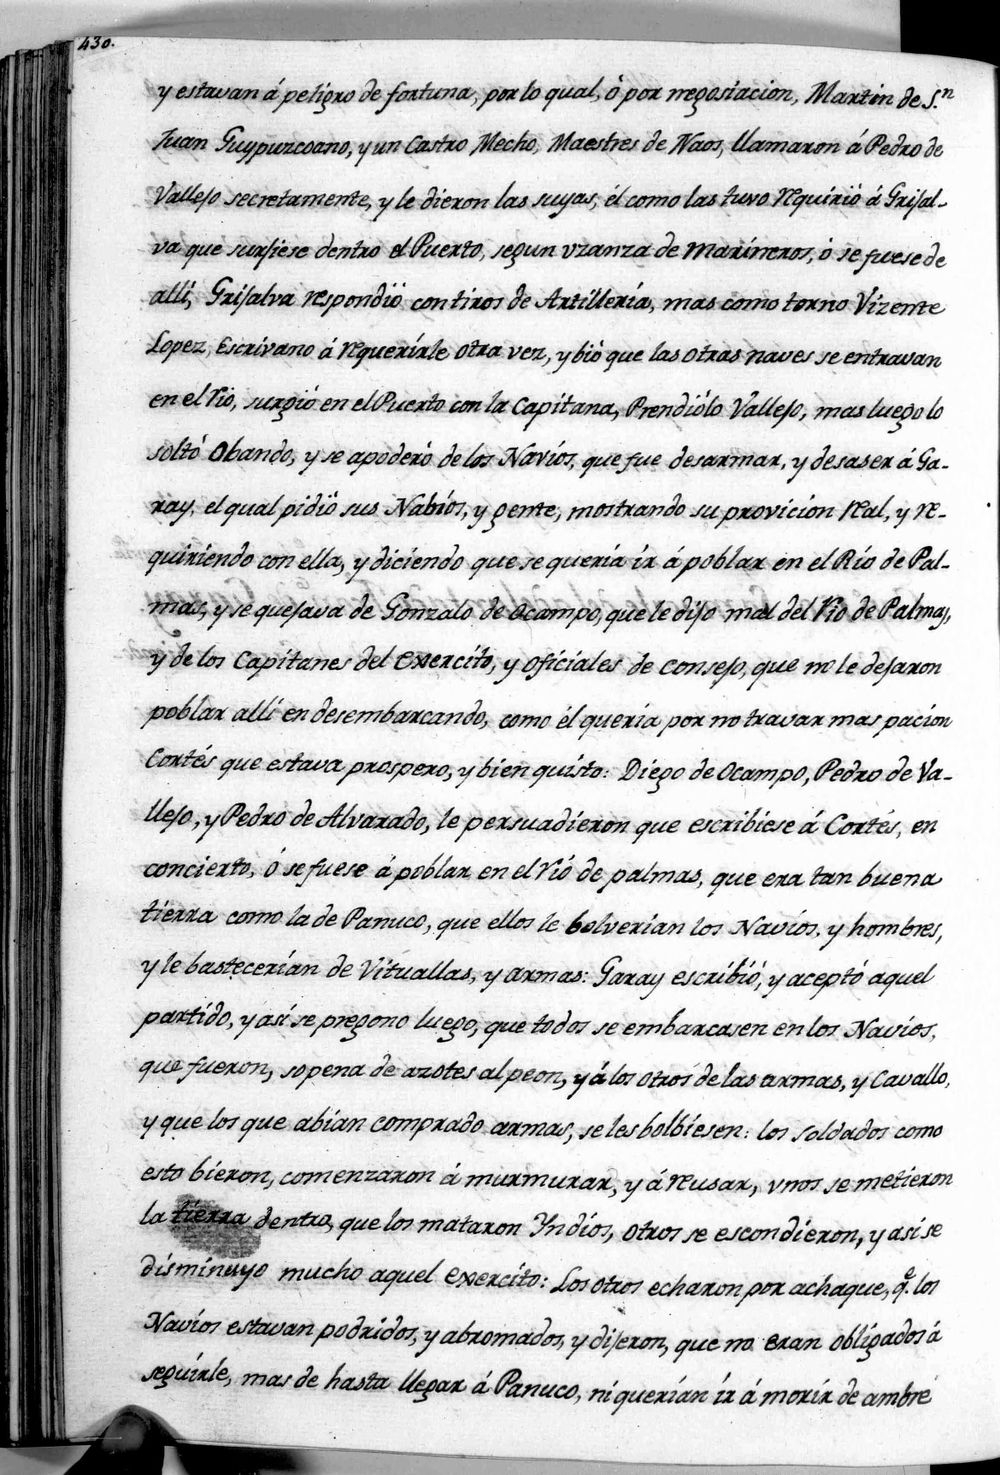 430.
y estavan á peligro de fortuna, por lo qual, ò por negosiacion, Martin de S.n
Juan Guypuzcoano, y un Castro Mecho, Maestres de Naos, llamaron á Pedro de
Vallejo secretamente, y le dieron las suyas, él como las tuvo requirió á Grijal-
va que surjiese dentro el Puerto, segun vzanza de marineros, ò se fuese de
allí, Grijalva respondió con tiros de Artillería, mas como torno Vizente
Lopez, Escrivano á requerirle otra vez, y bió que las otras naves se entravan
en el rio, surgió en el Puerto con la Capitana, Prendiólo Vallejo, mas luego lo
soltó Obando, y se apoderò de los Navíos, que fue desarmar, y desaser á Ga-
ray, el qual pidiò sus Nabíos, y gente, mostrando su provicion real, y re-
quiriendo con ella, y diciendo que se quería ir á poblar en el Río de Pal-
mas, y se quejava de Gonzalo de Ocampo, que le dijo mal del rio de Palmas,
y de los Capitanes del Exercito, y oficiales de consejo, que no le dejaron
poblar allí en desembarcando, como él quería por no travar mas pacion
Cortés que estava prospero, y bien quisto: Diego de Ocampo, Pedro de Va-
llejo, y Pedro de Alvarado, le persuadieron que escribiese á Cortés, en
concierto, ó se fuese á poblar en el rió de palmas, que era tan buena
tierra como la de Panuco, que ellos le bolverían los Navíos, y hombres,
y le bastecerían de Vituallas, y armas: Garay escribió, y aceptó aquel
partido, y así se pregono luego, que todos se embarcasen en los Navíos,
que fueron, sopena de azotes al peon, y á los otros de las armas, y Cavallo,
y que los que abían comprado armas, se les bolbiesen: los soldados como
esto bieron, comenzaron á murmurar, y á reusar, vnos se metieron
la tierra dentro, que los mataron Yndios, otros se escondieron, y así se
disminuyo mucho aquel exercito: Los otros echaron por achaque, q.e los
Navíos estavan podridos, y abromados, y dijeron, que no eran obligados á
seguirle, mas de hasta llegar á Panuco, ni querían ir á morir de ambre